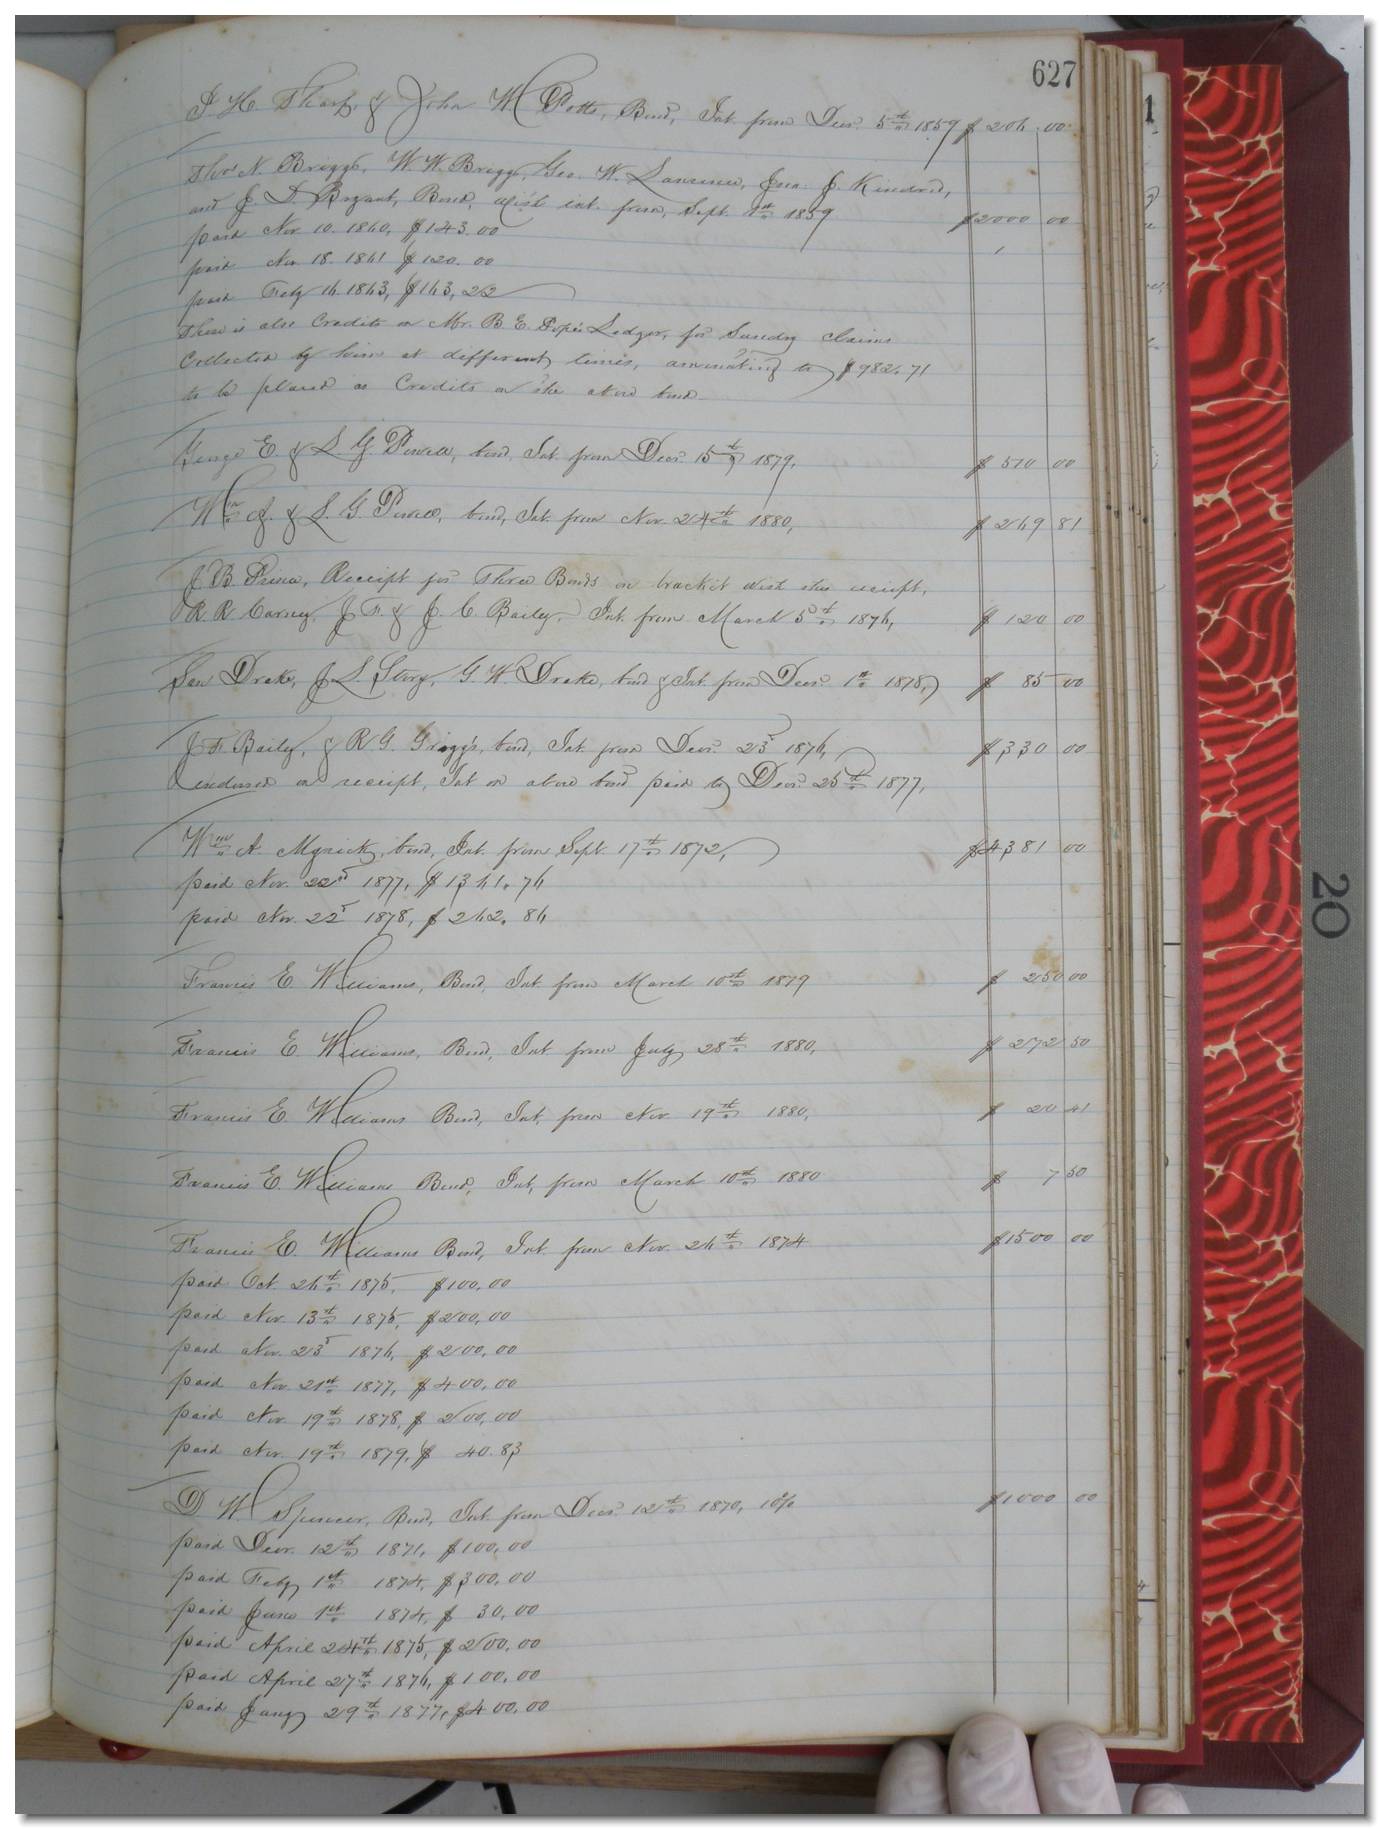 627
J. H. Sharp & John W Potts, Bond, Int. from Decr. 5th 1859 $ 206 00
Thos N. Briggs, W. W. Briggs, Geo. W. Lawrence, Jno. J. Kindred,
and J. D. Bryant, Bond, with int. from, Sept. 1st 1859 $2000 00
paid Nov 10. 1860, $143.00
paid Nov 18. 1861 $120.00
paid Feby 16. 1863, $163,22
There is also Credits on Mr. B. E. Pope's Ledger, for Sundry claims
Collected by him at different times, amounting to $982.71
to be placed as Credits on the above bond.
George E. & L. G. Powell, bond, Int. from Decr. 15th 1879, $ 510 00
Wm J. & L. G. Powell, bond, Int. from Nov. 24th 1880, $ 269 81
J. B. Prince, Receipt for Three Bonds on bracket with this receipt,
R. R Carney, J. F. & J. C. Bailey. Int. from March 5th 1876, $ 120 00
Drake, J L Story, G. W. Drake, bond & Int. from Decr. 1st 1878, $ 85 00
J F. Bailey, & R G. Griggs, bond, Int. from Decr. 25 1876, $330 00
endorsed on receipt, Int on above bond paid to Decr. 25th 1877,
Wm A. Myrick, bond, Int. from Sept. 17th 1872, $4381 00
paid Nov. 22d 1877, $1361.76
paid Nov. 22d 1878, $262.86
Francis E Williams, Bond, Int. from March 10th 1879 $ 250 00
Francis E. Williams, Bond, Int. from July 28th 1880, $ 272 50
Francis E. Williams Bond, Int. from Nov. 19th 1880, $ 20 41
Francis E. Williams Bond, Int, from March 10th 1880 $ 7 50
Francis E. Williams Bond, Int. from Nov. 26th 1874 $1500 00
paid Oct. 26th 1875, $100,00
paid Nov. 13th 1875, $200,00
paid Nov. 23d 1876, $200,00
paid Nov. 21st 1877, $400,00
paid Nov. 19th 1878, $200,00
paid Nov. 19th 1879, $ 40.83
D. W. Spencer, Bond, Int. from Decr. 12th 1870, 10% $1000 00
paid Decr. 12th 1871, $100,00
paid Feby 1st 1874, $300,00
paid June 1st 1874, $ 30,00
paid April 24th 1875, $200,00
paid April 27th 1876, $100,00
paid Jany 29th 1877, $400,00
1
20